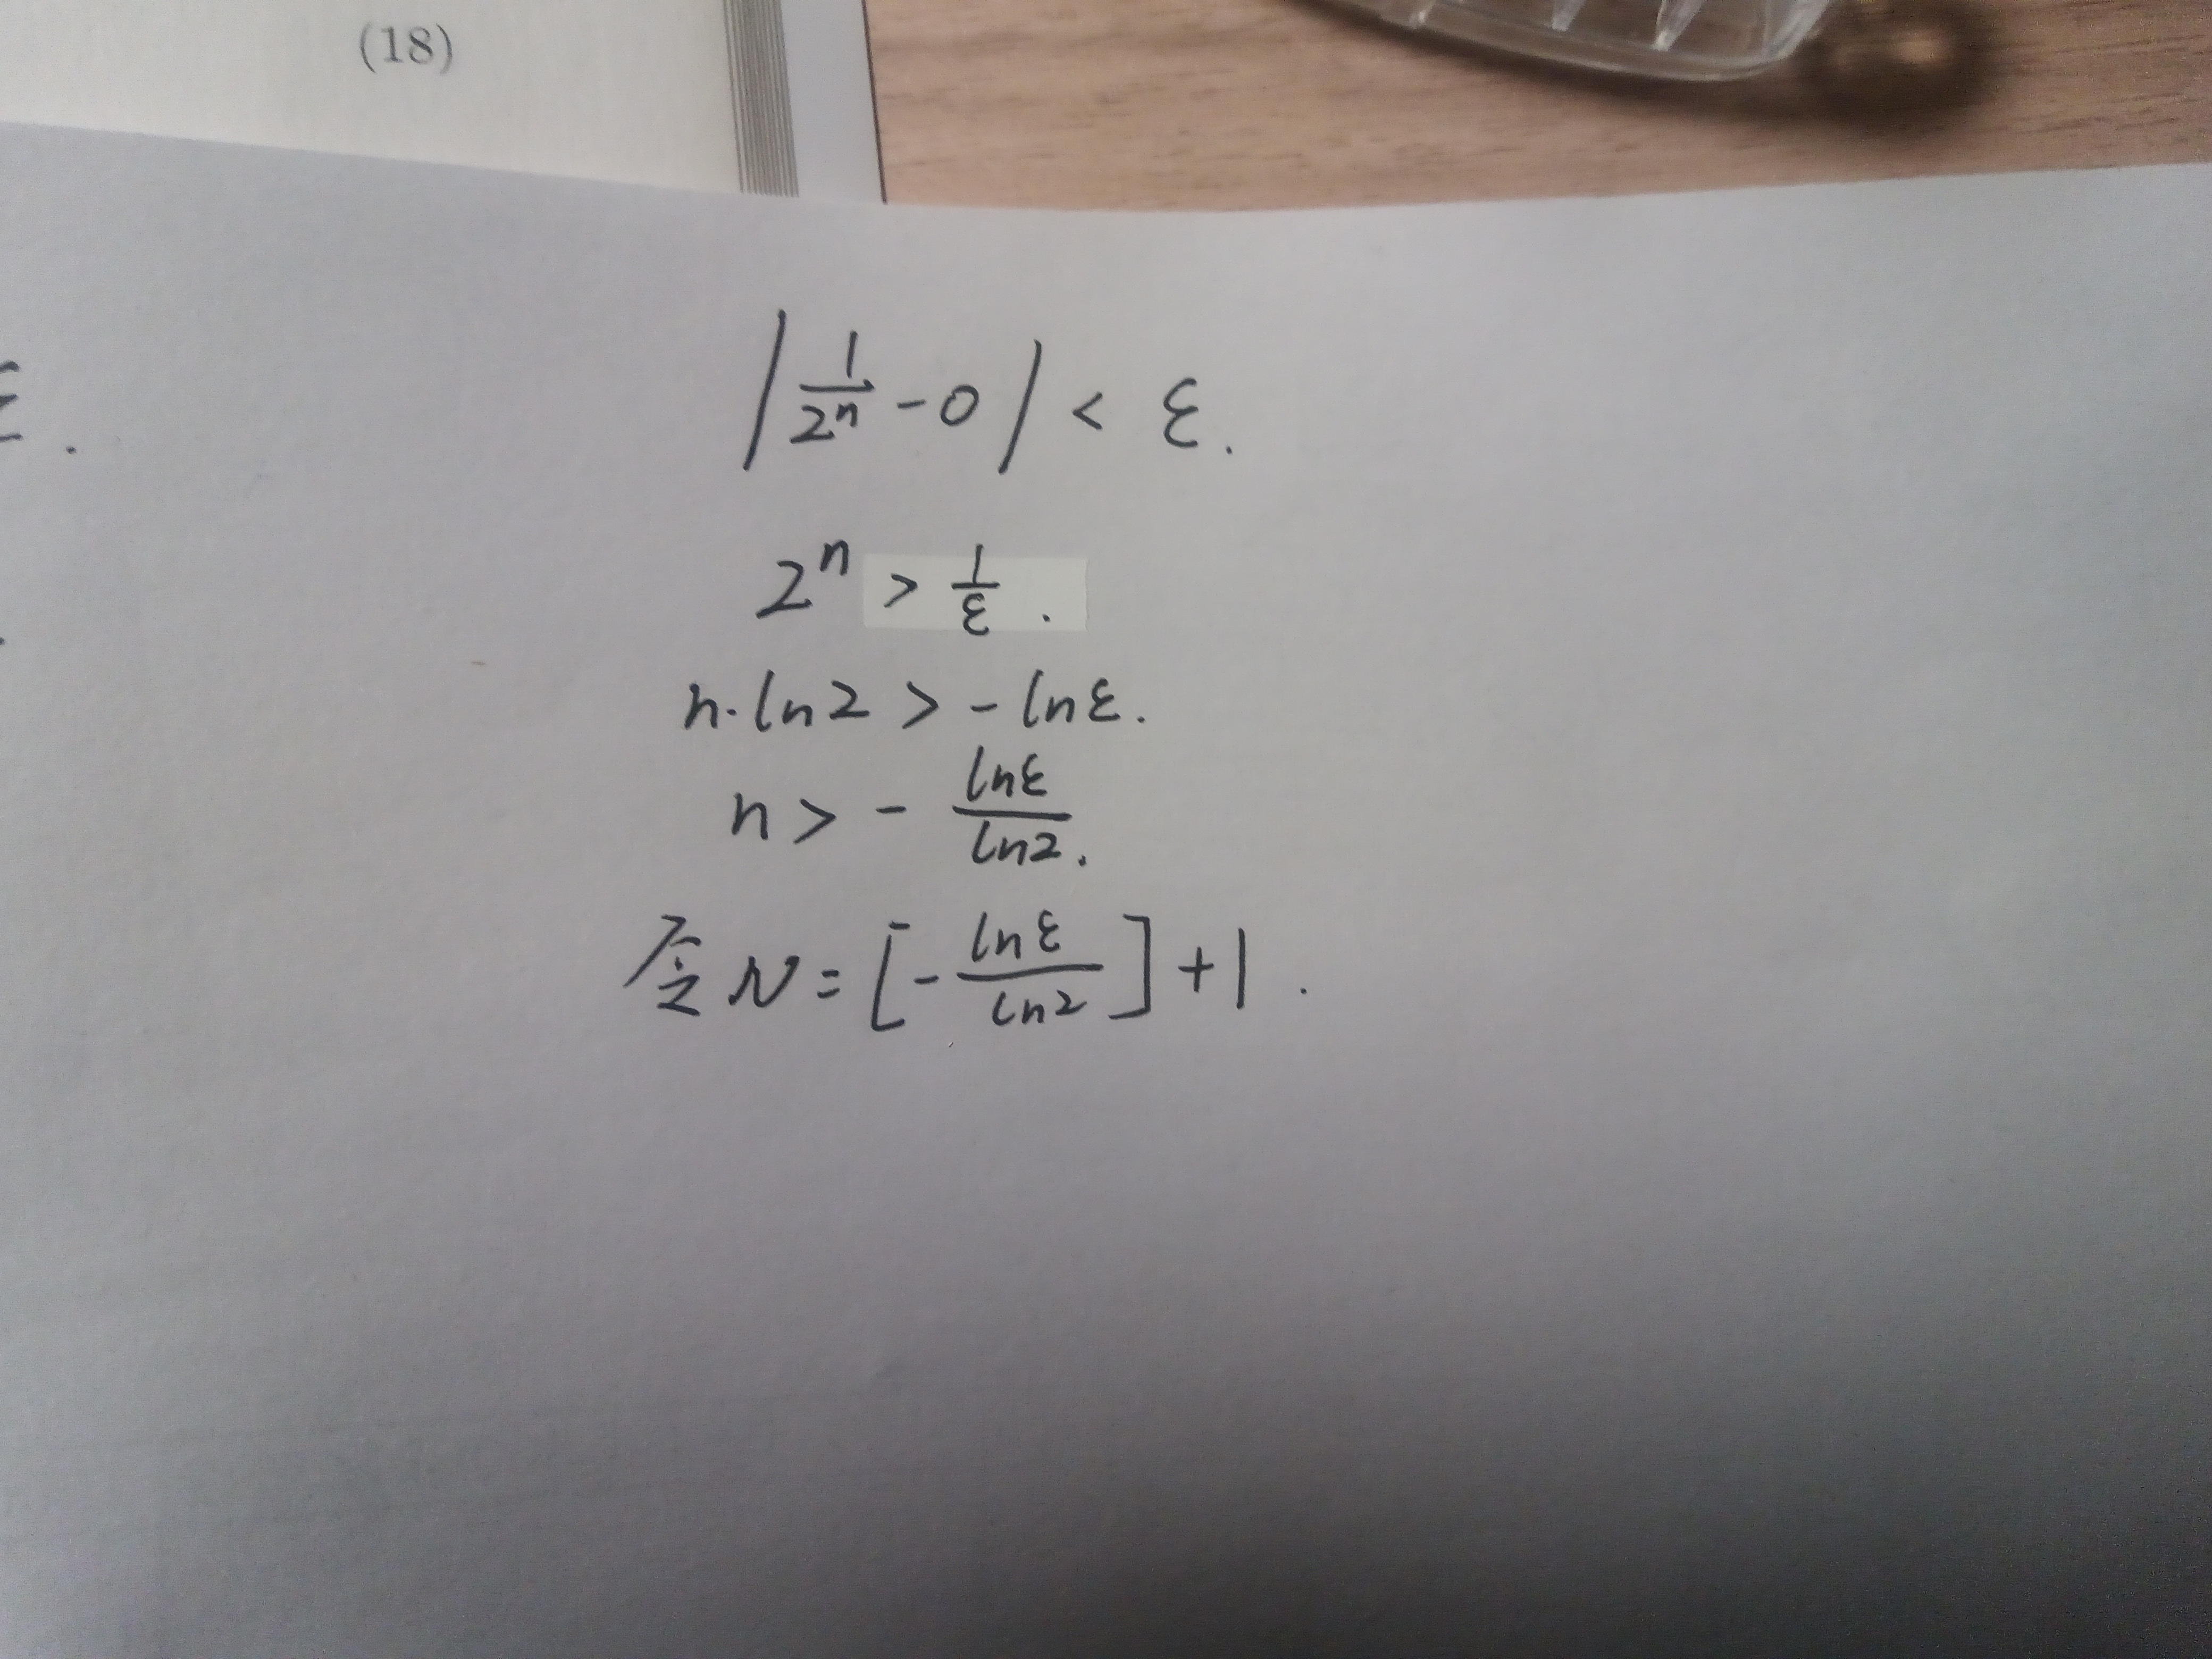 (18)
ε.
|1/2ⁿ - 0| < ε.
2ⁿ > 1/ε.
n·ln2 > -lnε.
n > - lnε/ln2.
令N = [-lnε/ln2] + 1.